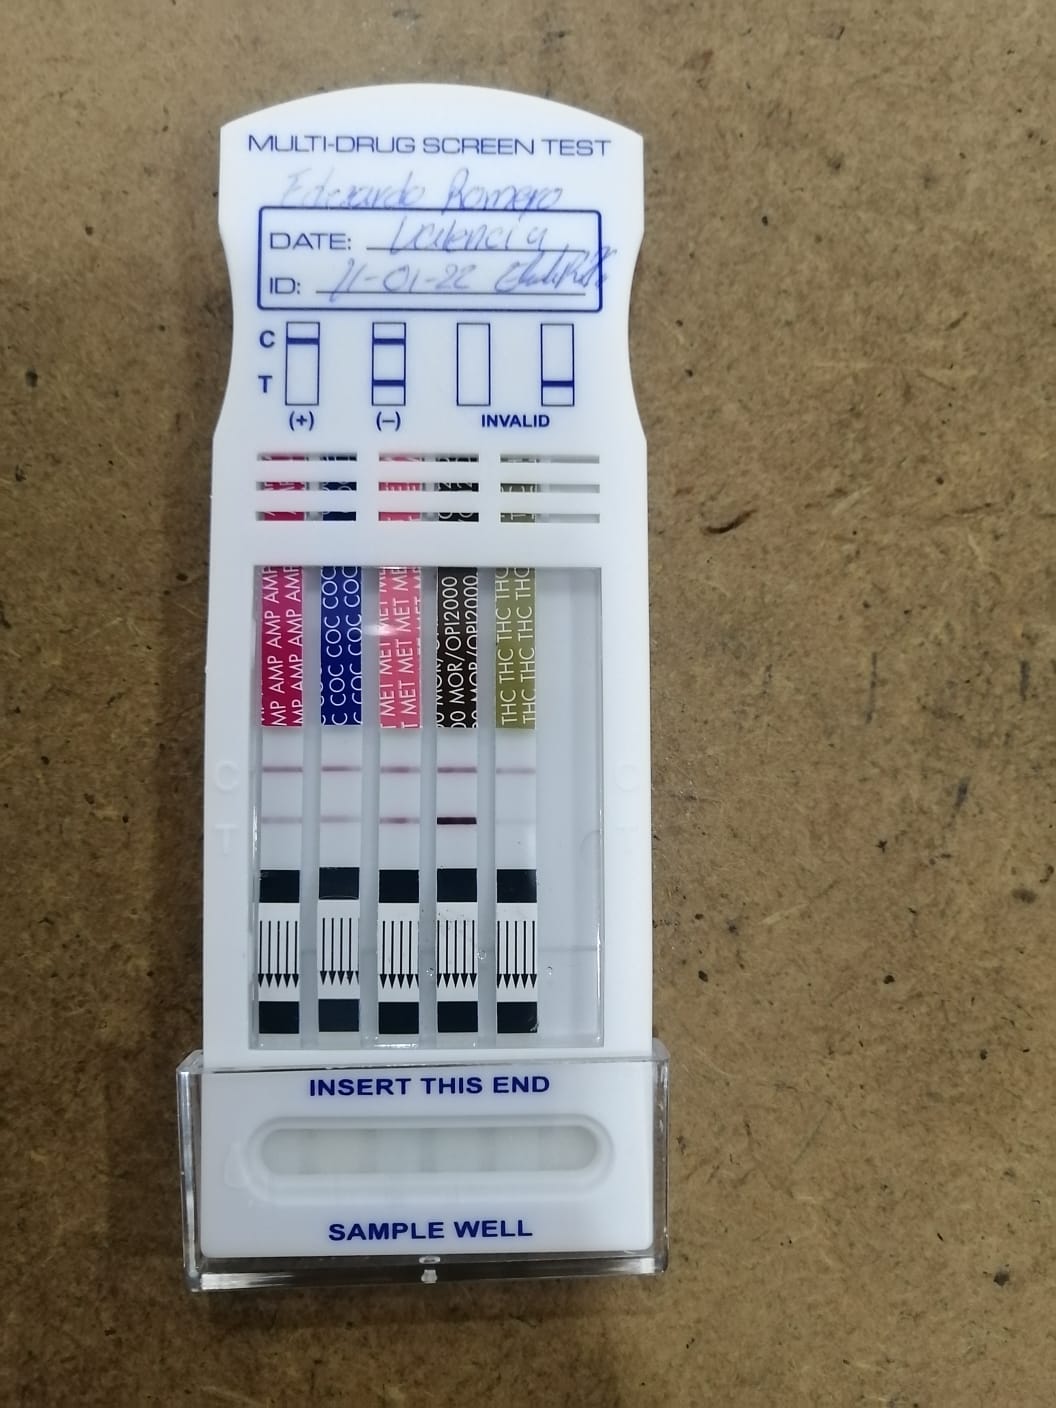 MULTI-DRUG SCREEN TEST
Romero
DATE: Valencia
ID: 11-01-22
C
T
(+) (-) INVALID
MP AMP AMP AMP
MP AMP AMP AMP
C COC COC COC
C COC COC COC
T MET MET MET ME
T MET MET MET ME
00 MOR/OPI2000
00 MOR/OPI2000
THC THC THC THC
THC THC THC THC
C C
T T
INSERT THIS END
SAMPLE WELL